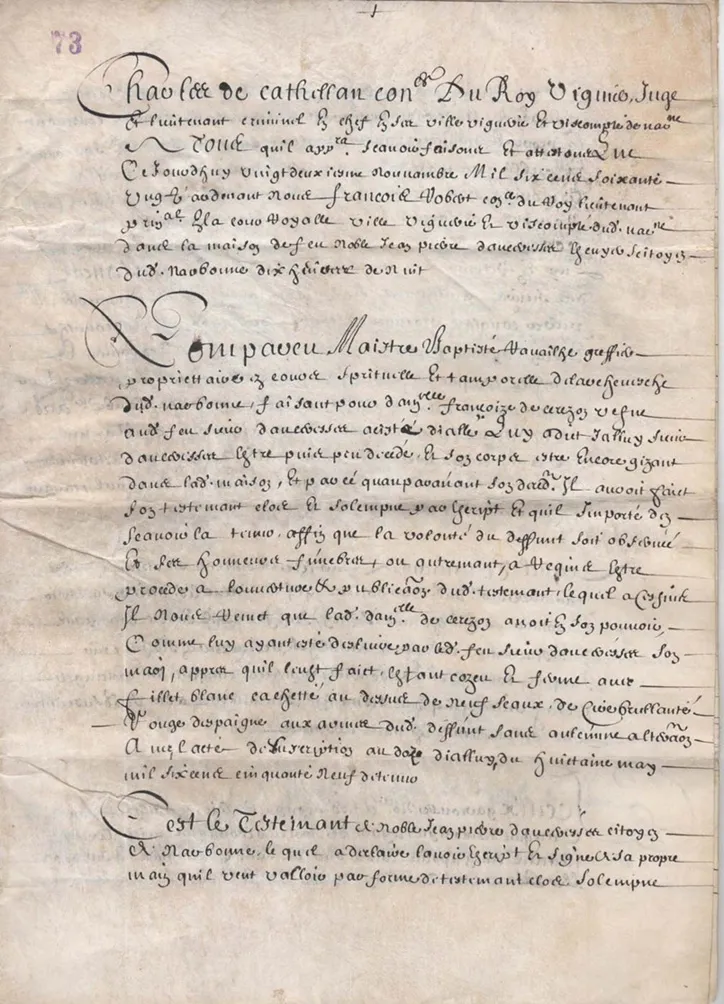 1
73
Charles de cathellan con.er Du Roy Viguier, Juge
Et lieutenant criminel En chef En ses ville viguerie Et viscompte de nar.ne
A Tous quil app.ra scavoir faisons Et attestons Que
Cejourdhuy vingt deuxiesme Novembre Mil six cens soixante
Ung pardevant Nous françois Robert con.er du Roy lieutenant
prin.al En la cour Royalle ville viguerie Et viscompte dud. nar.ne
dans la maison de feu Noble Jean pierre citoyen
dud. Narbonne dix heures de Nuit
Comparu Maistre Baptiste greffier
propriettaire En cours spirituelle Et tamporelle de larchevesche
dud. narbonne, faisant pour dam.lle françoize de vefve
aud. feu sieur assisté dicelle Quy a dit Icelluy sieur
Estre puis peu decedé, Et son corps estre Encore gizant
dans lad. maison, Et par ce quauparavant son deces Il avoit faict
son testemant clos Et solempne par Escript Et quil Importe den
scavoir la teneur affin que la volonté du deffunt soit observée
Et ses honneurs funebres, ou autremant, a Requis Estre
procédé a louverture & publica.on dud. testemant, lequel a
Il Nous Remet que lad. dam.lle de avoit En son pouvoir
Comme luy ayant esté deslivré par led. feu sieur son
mary, appres quil leust faict, Estant cozeu Et fermé avec
fillet blanc cachetté au dessus de Neuf seaux, de Cire brullante
Rouge despaigne aux armes dud. deffunt sans aulcune altera.on
Avec lacte de suscription au dos dicelluy, du huictaine may
mil six cens cinquante Neuf de teneur
Cest le Testemant de Noble Jean pierre citoyen
de Narbonne, lequel a declairé lavoir Escript Et signé de sa propre
main quil veut valloir par forme de testemant clos solempne